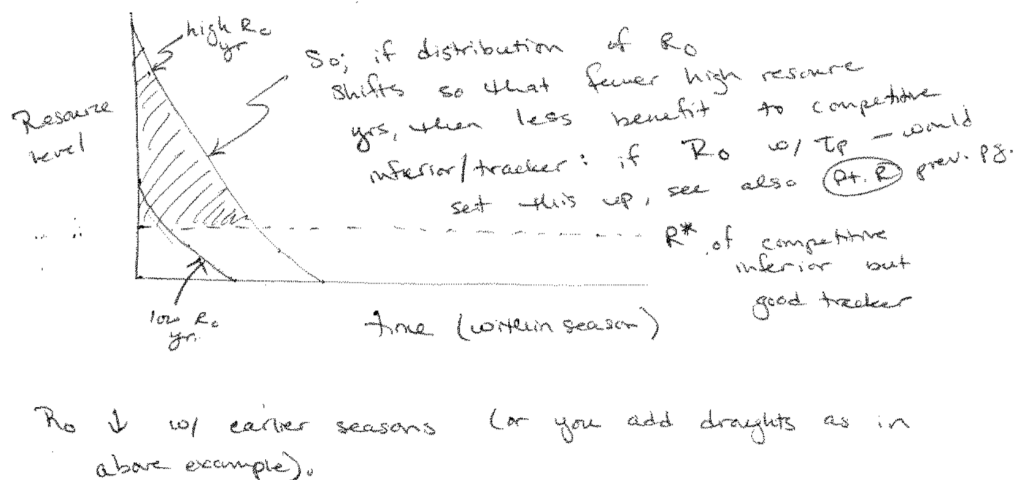 high R0
yr
So; if distribution of R0
shifts so that fewer high resource
yrs, then less benefit to competitive
inferior/tracker: if R0 w/ τp – would
set this up, see also pt. R prev. pg.
Resource
level
R* of competitive
inferior but
good tracker
low R0
yr.
time (within season)
R0 ↓ w/ earlier seasons (or you add draughts as in
above example).